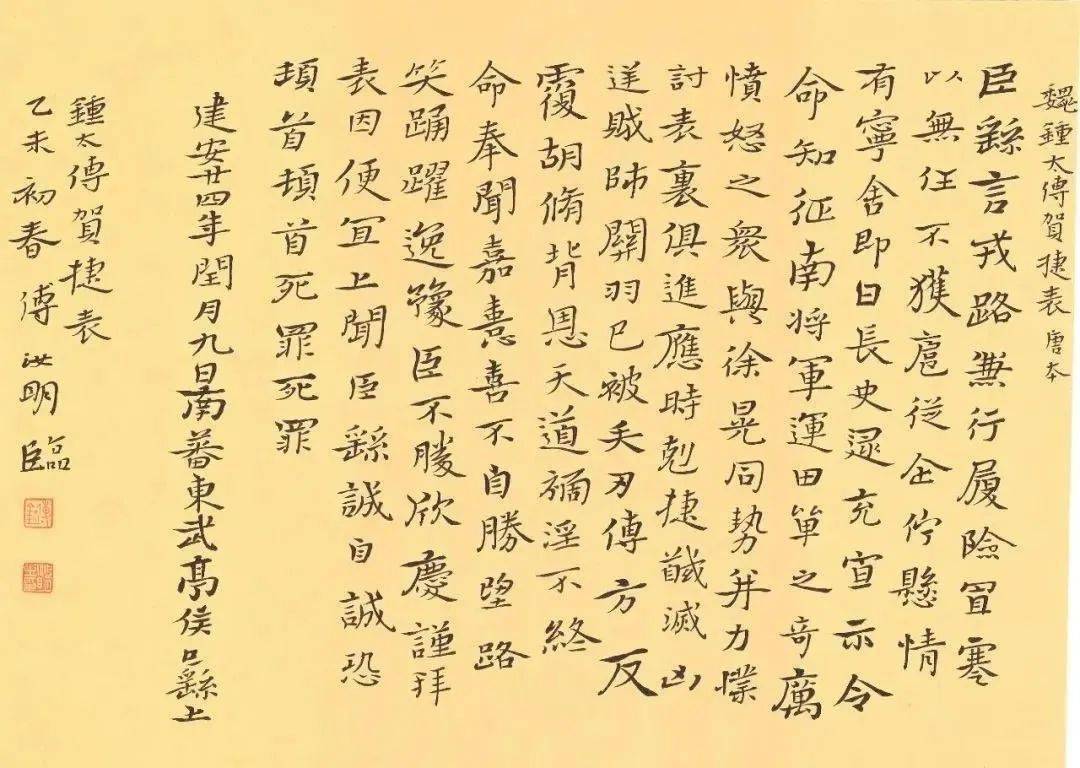 魏鍾太傅賀捷表唐本
臣繇言戎路兼行履險冒寒
以無任不獲扈從企佇懸情
有寧舍即日長史逯充宣示令
命知征南將軍運田單之奇厲
憤怒之衆與徐晃同勢并力撲
討表裏俱進應時剋捷馘滅凶
逆賊帥關羽已被矢刃傅方反
覆胡脩背恩天道禍淫不終
命奉聞嘉憙喜不自勝望路
笑踊躍逸豫臣不勝欣慶謹拜
表因便宜上聞臣繇誠自誠恐
頓首頓首死罪死罪
建安廿四年閏月九日南蕃東武亭侯臣繇上
鍾太傅賀捷表
乙未初春傅汝明臨